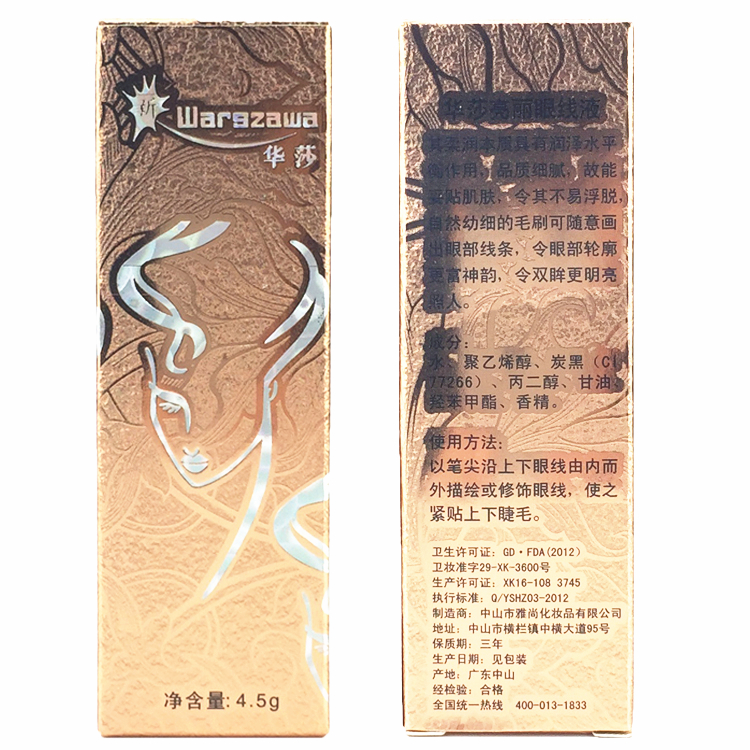 新
Wargzawa
华莎
净含量:4.5g
华莎亮丽眼线液
其柔润本质具有润泽水平
衡作用，品质细腻，故能
紧贴肌肤，令其不易浮脱，
自然幼细的毛刷可随意画
出眼部线条，令眼部轮廓
更富神韵，令双眸更明亮
照人。
成分：
水、聚乙烯醇、炭黑（CI
77266）、丙二醇、甘油、
羟苯甲酯、香精。
使用方法：
以笔尖沿上下眼线由内而
外描绘或修饰眼线，使之
紧贴上下睫毛。
卫生许可证：GD·FDA(2012)
卫妆准字29-XK-3600号
生产许可证：XK16-108 3745
执行标准：Q/YSHZ03-2012
制造商：中山市雅尚化妆品有限公司
地址：中山市横栏镇中横大道95号
保质期：三年
生产日期：见包装
产地：广东中山
经检验：合格
全国统一热线 400-013-1833